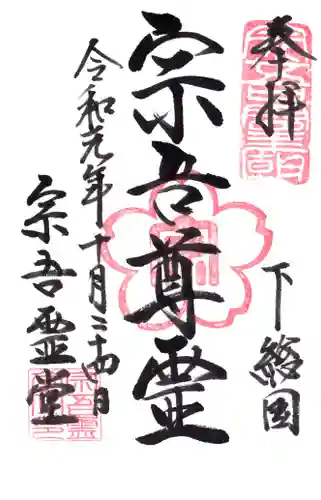 奉拝
下総国
宗吾尊霊
令和元年十月二十四日
宗吾霊堂